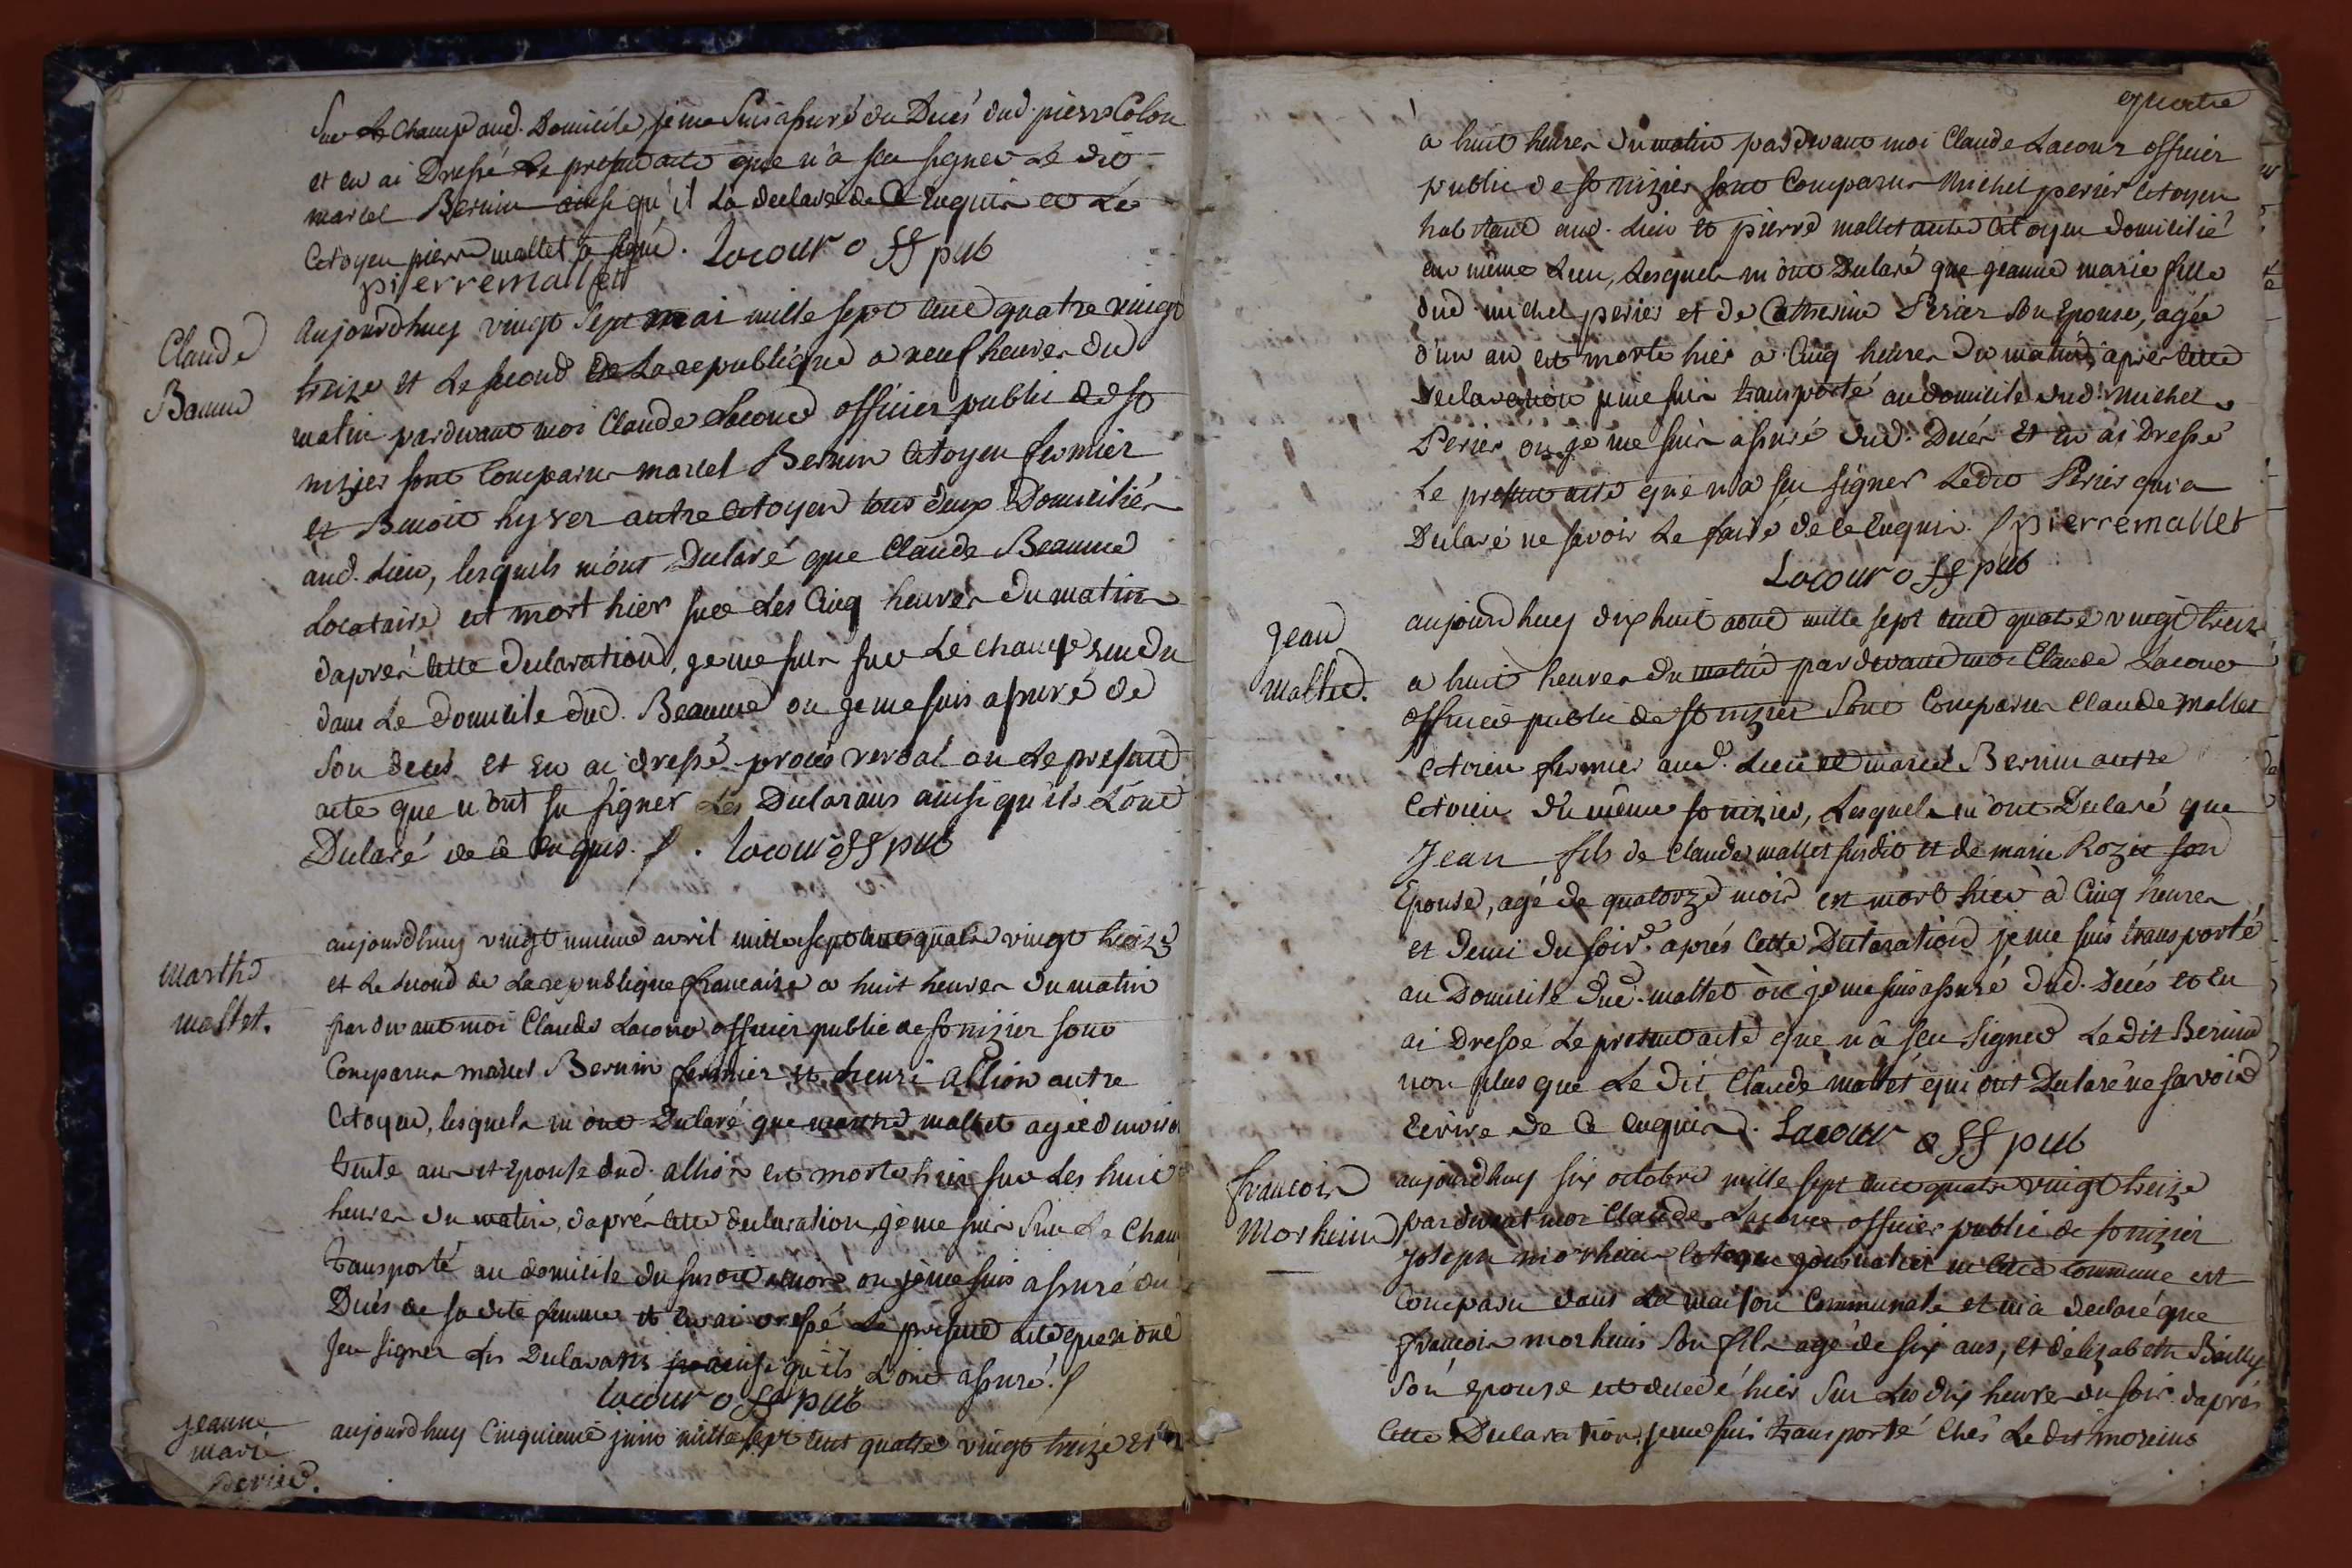 Sur Le Champ aud. Domicile, je me Suis assuré du Decés dud. pierre Colon
et en ai Dressé Le present acte que n'a sçu signer Le dit
marcel Bernin ainsi qu'il La declaré de Ce Enquis et Le
Citoyen pierre mallet a signé. Lacour off pub
pierre mallet
Claude
Baume
Aujourdhuy vingt Sept mai mille sept cent quatre vingt
treize et Le second de La republique a neuf heures du
matin pardevant moi Claude Lacour officier public de st
nizier sont Comparus marcel Bernin Citoyen fermier
et Benoit hyver autre Citoyen tous deux Domiciliés
aud. Lieu, lesquels m'ont Declaré que Claude Beaume
Locataire est mort hier sur Les Cinq heures du matin
d'aprés cette Declaration, je me suis sur Le champ rendu
dans Le domicile dud. Beaume ou je me suis assuré de
Son decés et en ai dressé procés verbal ou Le present
acte que n'ont su signer Les Declarans ainsi qu'ils L'ont
Declaré de ce enquis. Lacour off pub
marthe
mallet.
aujourdhuy vingt unieme avril mille sept cent quatre vingt treize
et Le second de La republique francaise a huit heures du matin
pardevant moi Claude Lacour officier public de st nizier sont
Comparus marcel Bernin fermier et henri allion autre
Citoyen, lesquels m'ont Declaré que marthe mallet agée d'environ
trente ans et Epouse dud. allion est morte hier sur Les huit
heures du matin, d'aprés cette declaration, je me suis Sur Le Cham
transporté au domicile du susdit ou je me suis assuré du
Decés de sa dite femme et en ai dressé Le present acte que n'ont
sçu signer Les Declarans ainsi qu'ils L'ont assuré.
Lacour off pub
jeanne
marie
perier.
aujourdhuy Cinquieme juin mille sept cent quatre vingt treize et
quatre
à huit heures du matin pardevant moi Claude Lacour officier
public de st nizier sont Comparus michel perier Citoyen
habitant aud. Lieu et pierre mallet autre Citoyen domicilié
au même Lieu, Lesquels m'ont Declaré que jeanne marie fille
dud. michel perier et de Catherine Perier Son Epouse, agée
d'un an est morte hier a Cinq heures du matin, aprés cette
declaration je me suis transporté au domicile dud. michel
Perier ou je me suis assuré dud. Decés et En ai Dressé
Le present acte que n'a sçu signer Ledit Perier qui a
Declaré ne savoir Le faire de ce Enquis. pierre mallet
Lacour off pub
Jean
mallet.
aujourdhuy dix huit aout mille sept cent quatre vingt treize
a huit heures du matin pardevant moi Claude Lacour
officier public de st nizier Sont Comparus Claude mallet
Citoien fermier aud. Lieu et marcel Bernin autre
Citoien du même st nizier, Lesquels m'ont Declaré que
Jean fils de Claude mallet susdit et de marie Rozie son
Epouse, agé de quatorze mois est mort hier à Cinq heures
et demi du soir. aprés Cette Declaration je me suis transporté
au Domicile dud. mallet où je me suis assuré dud. Decés et En
ai Dressé Le present acte que n'a sçu Signer Le dit Bernin
non plus que Le dit Claude mallet qui ont Declaré ne savoir
Ecrire de Ce enquis. Lacour off pub
francois
Morheins
aujourdhuy six octobre mille sept cent quatre vingt treize
pardevant moi Claude Lacour officier public de st nizier
joseph morheins Citoyen journalier en Cette Commune est
Comparu dans La maison Communale et m'a declaré que
francois morheins Son fils agé de six ans, et d'elizabeth Bailly
Son epouse est decedé hier Sur Les dix heures du soir. d'aprés
Cette Declaration, je me suis transporté Chés Le dit moreins